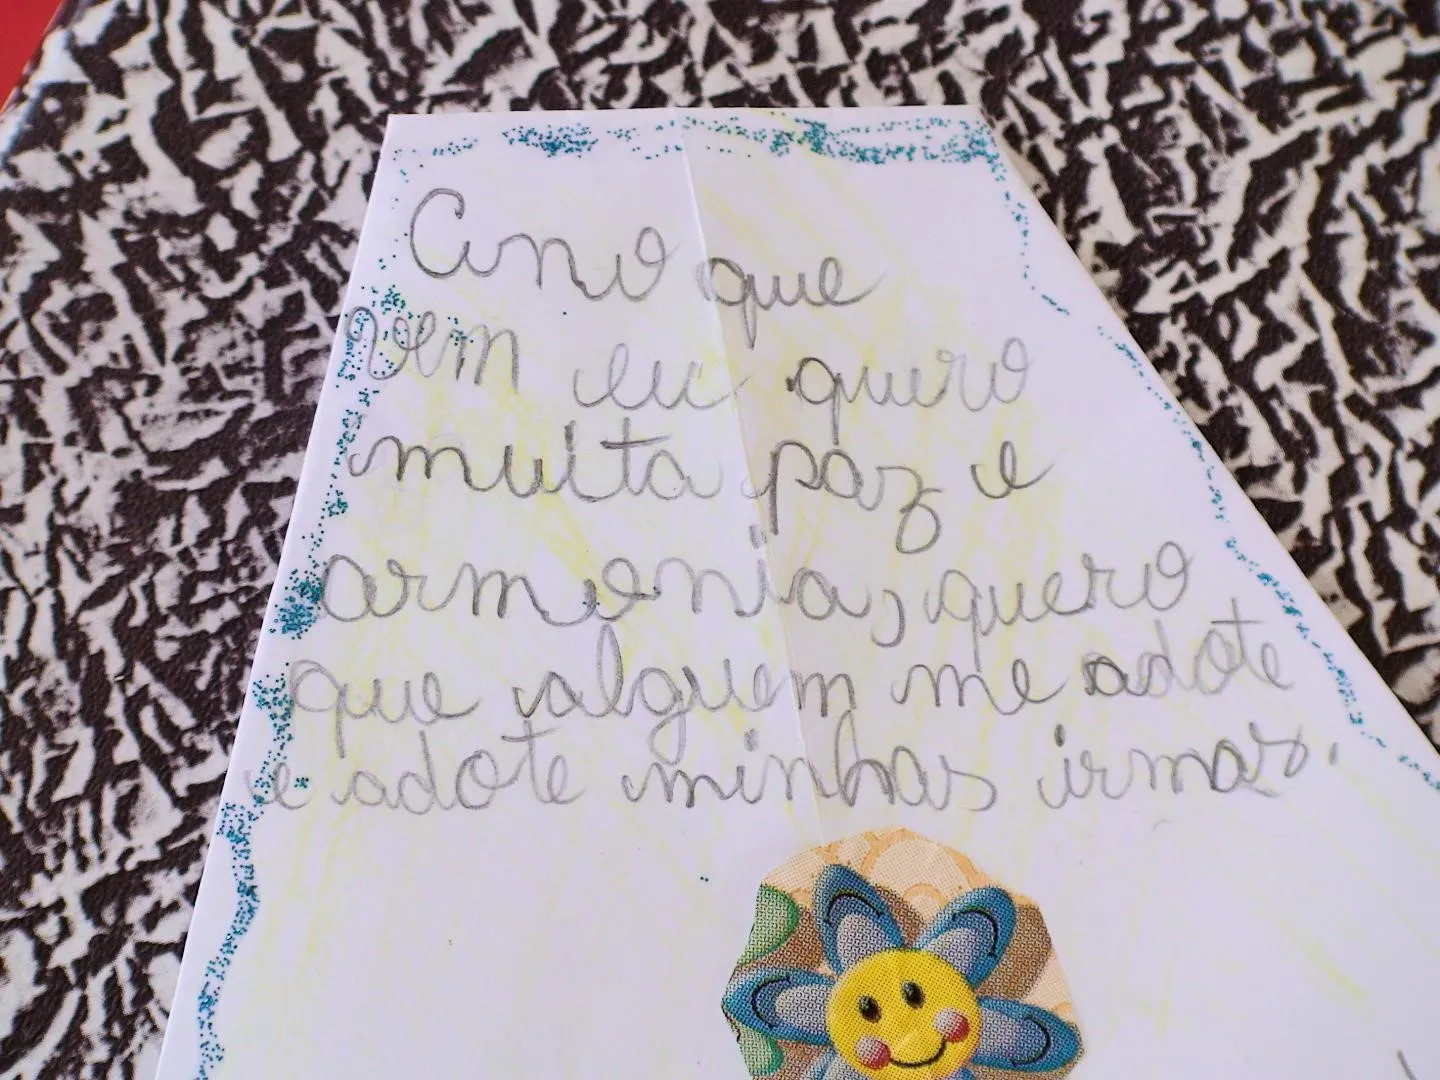 Ano que
vem eu quero
muita paz e
armonia, quero
que alguem me adote
e adote minhas irmas.